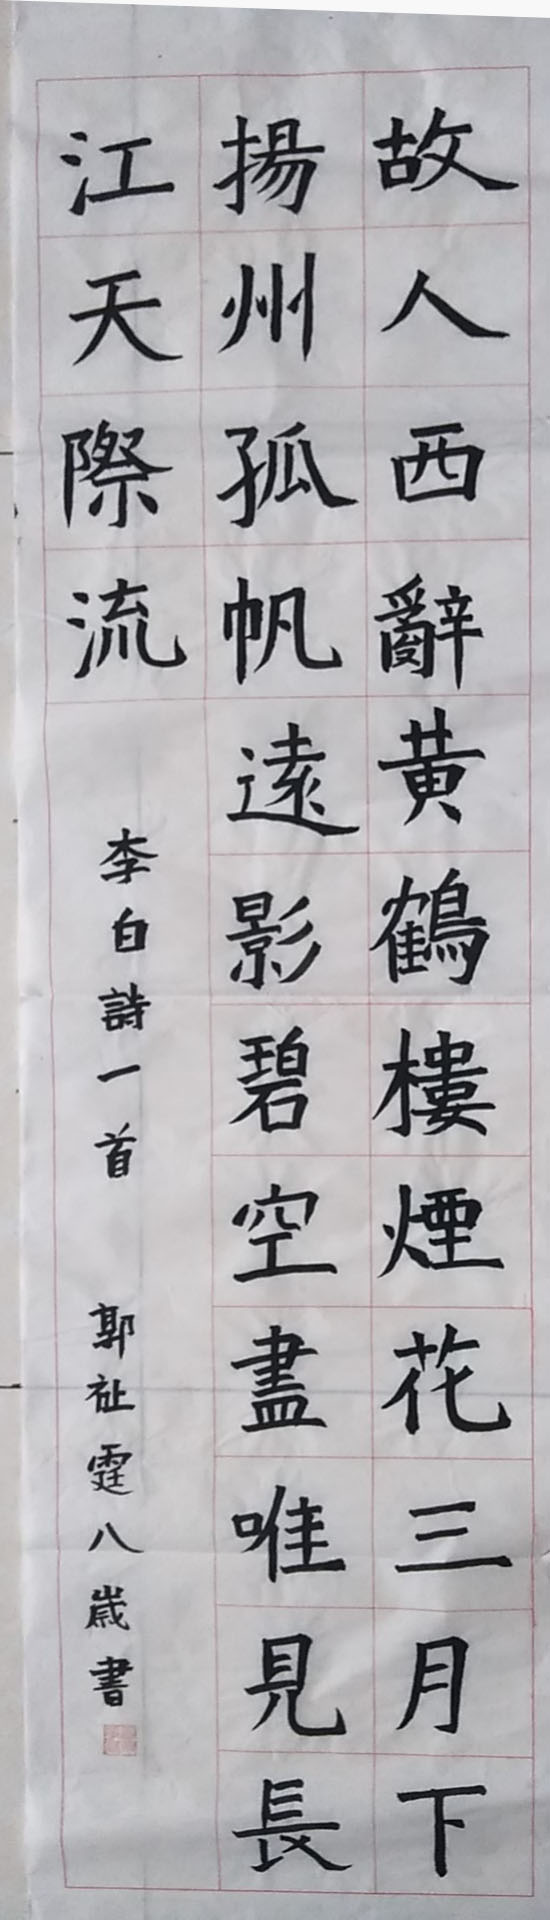 故人西辭黄鶴樓煙花三月下
揚州孤帆遠影碧空盡唯見長
江天際流
李白詩一首 郭祉霆八歲書